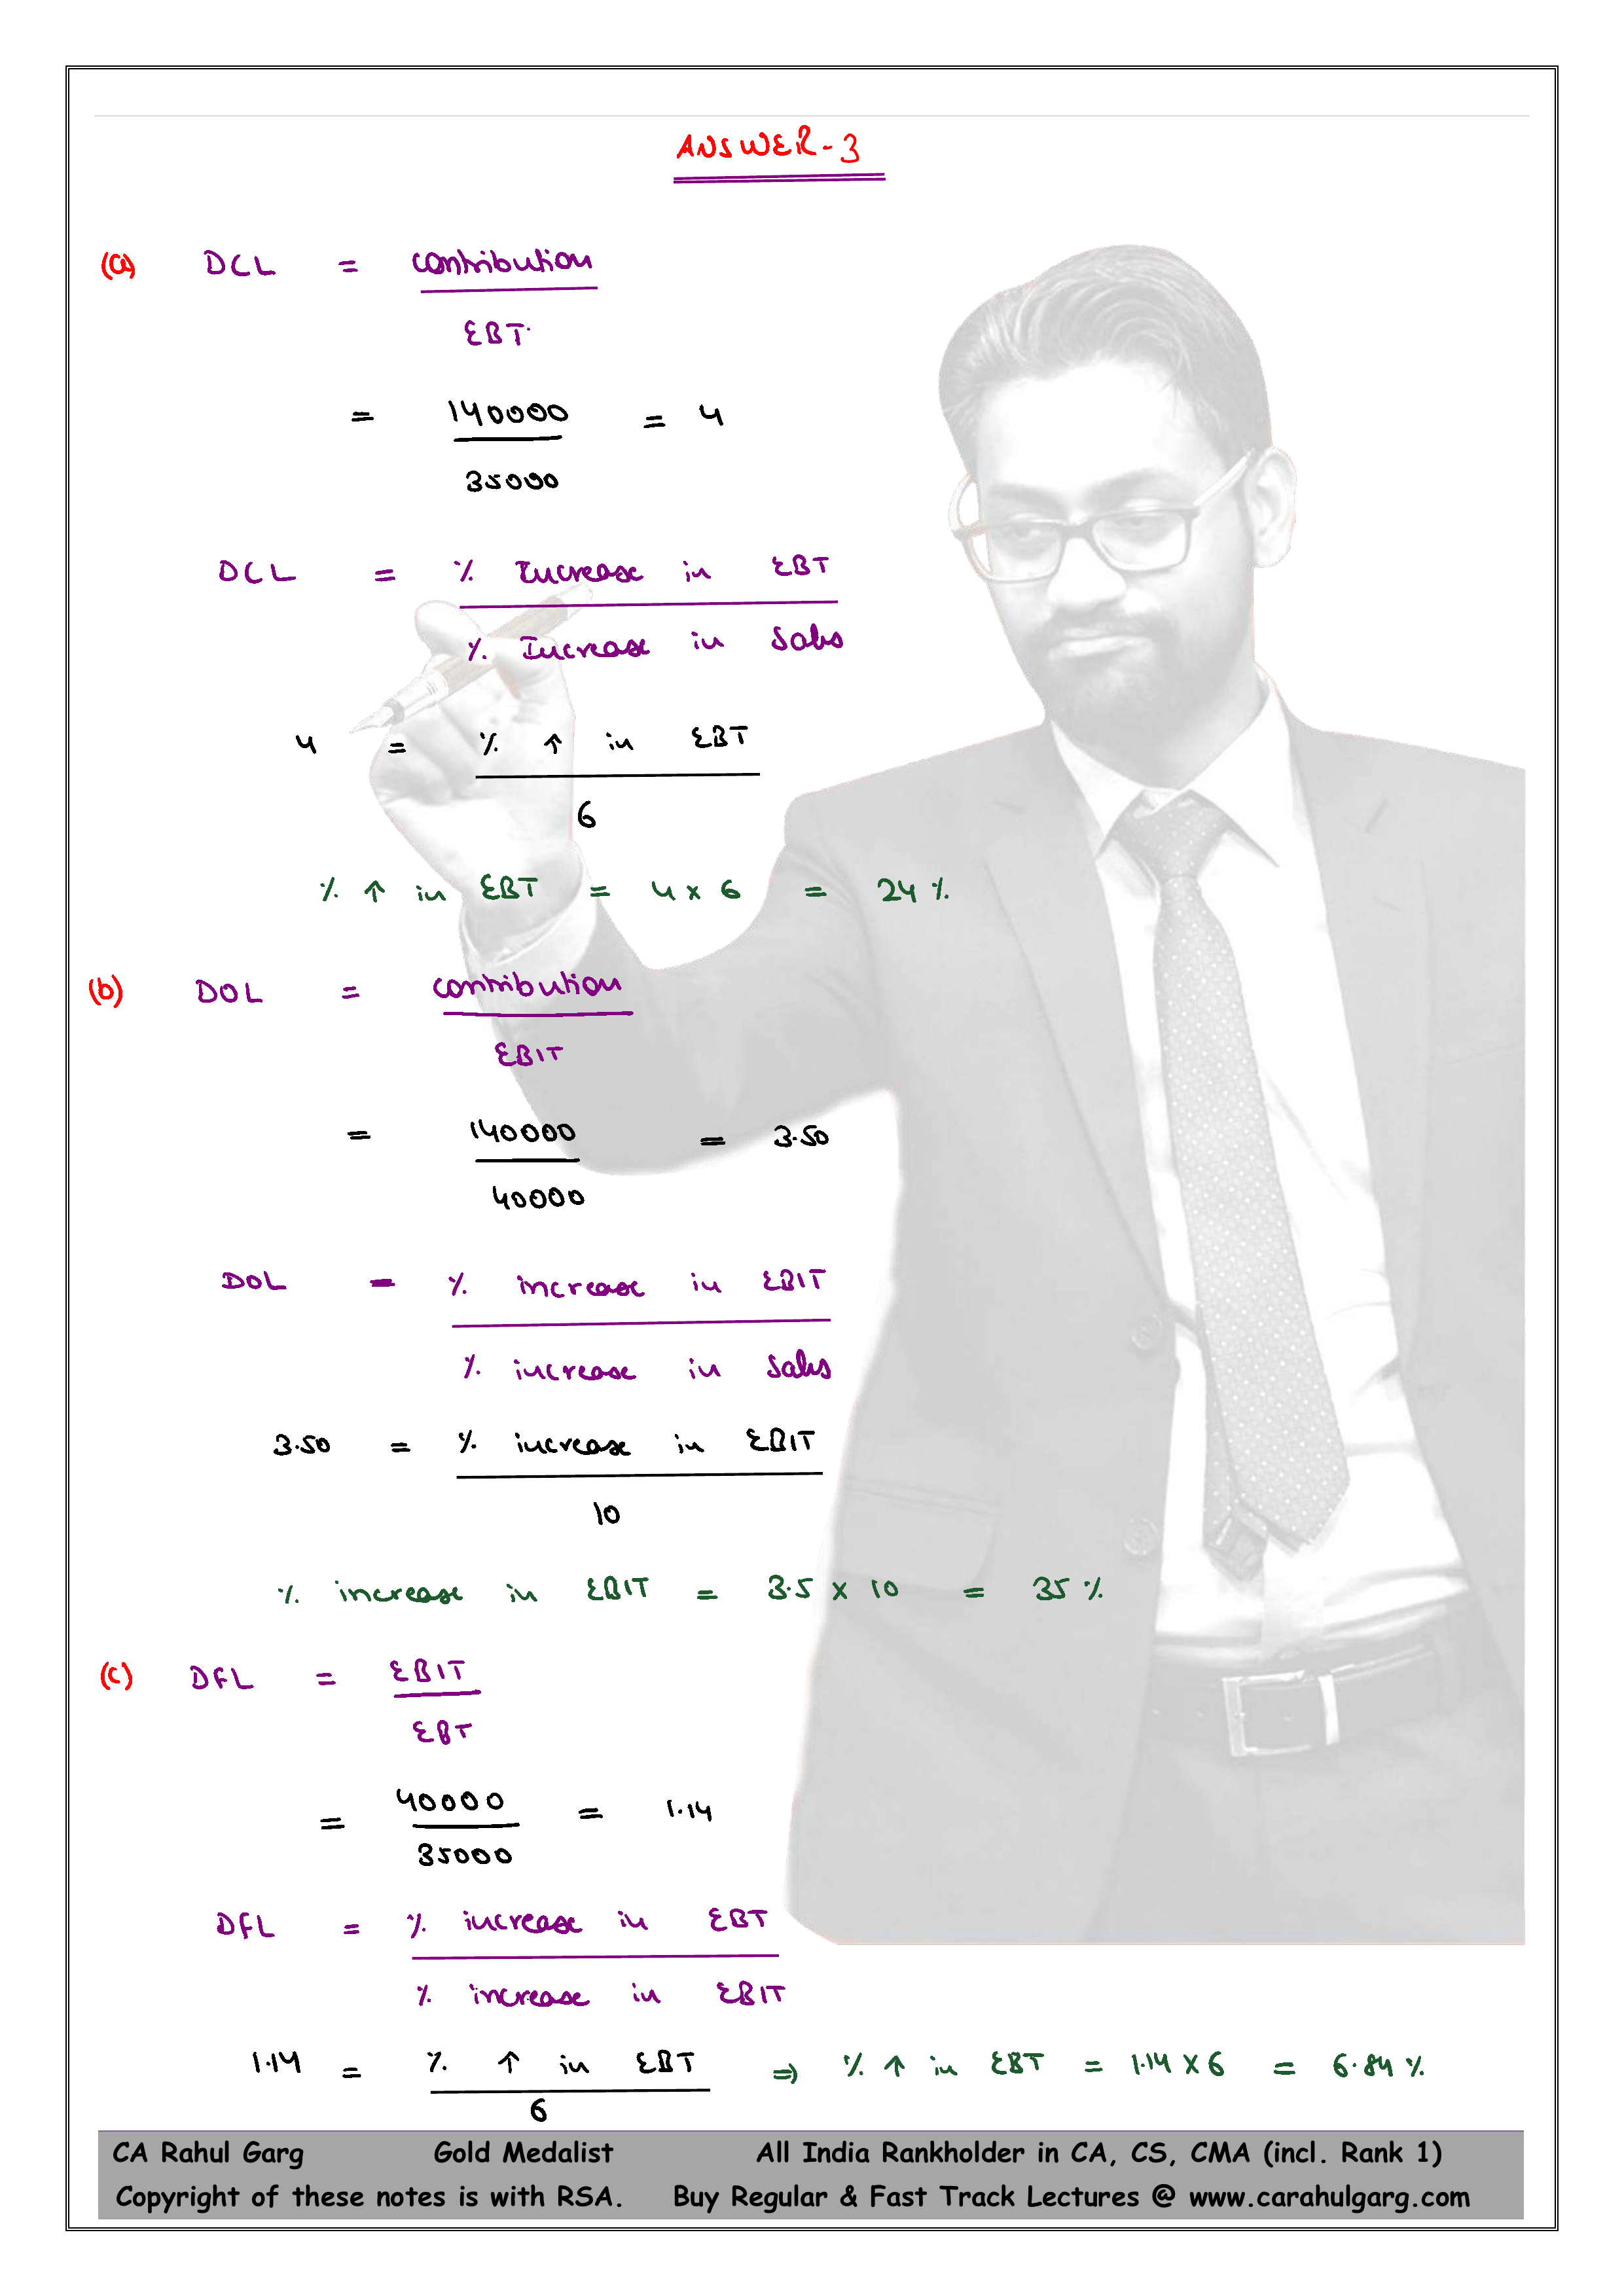 ANSWER-3
(a) DCL = contribution
EBT
= 140000 = 4
35000
DCL = % Increase in EBT
% Increase in Sales
4 = % ↑ in EBT
6
% ↑ in EBT = 4 x 6 = 24 %
(b) DOL = contribution
EBIT
= 140000 = 3.50
40000
DOL = % increase in EBIT
% increase in Sales
3.50 = % increase in EBIT
10
% increase in EBIT = 3.5 x 10 = 35 %
(c) DFL = EBIT
EBT
= 40000 = 1.14
35000
DFL = % increase in EBT
% increase in EBIT
1.14 = % ↑ in EBT ⇒ % ↑ in EBT = 1.14 x 6 = 6.84 %
6
CA Rahul Garg Gold Medalist All India Rankholder in CA, CS, CMA (incl. Rank 1)
Copyright of these notes is with RSA. Buy Regular & Fast Track Lectures @ www.carahulgarg.com